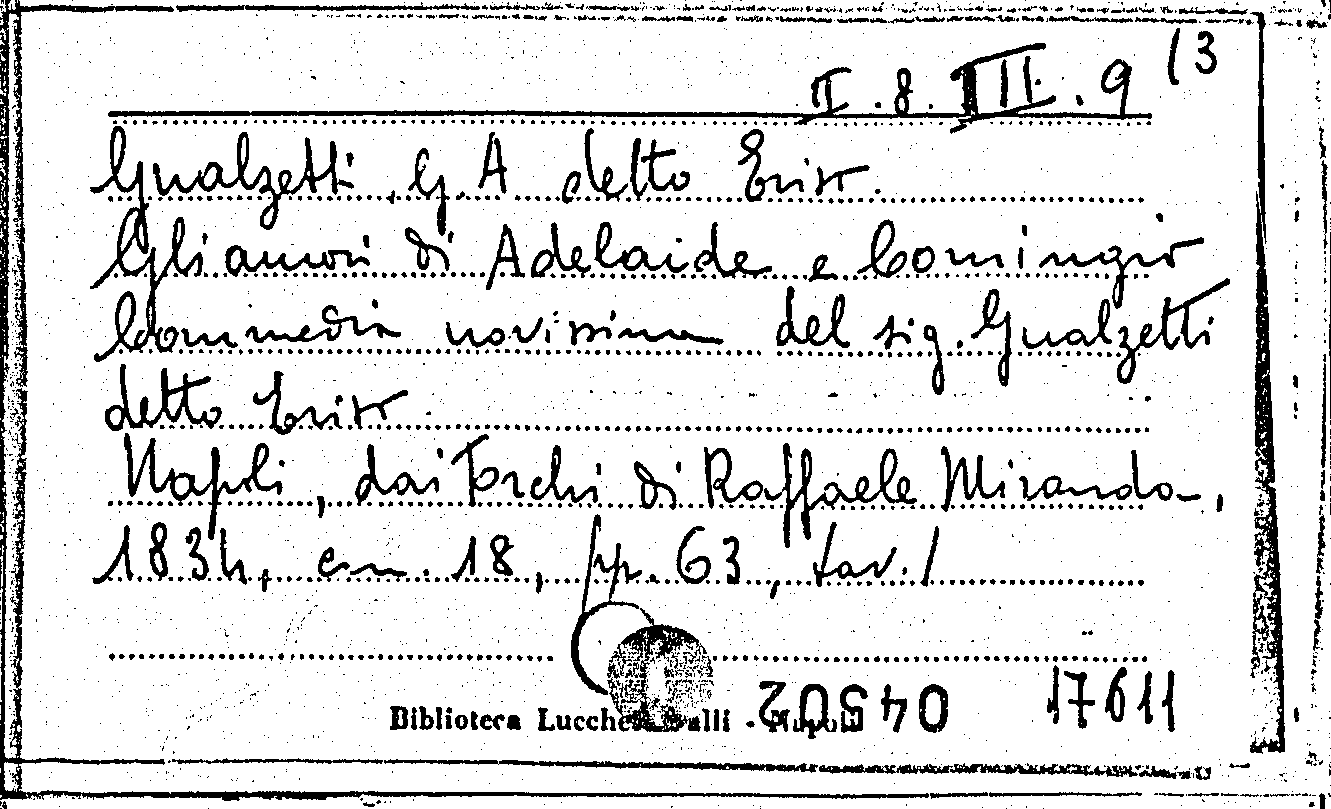 II.8.III.9 (3
Gualzetti, G.A detto Eriso.
Gli amori di Adelaide e Comingio
Commedia novissima del sig. Gualzetti
detto Eriso
Napoli, dai Torchi di Raffaele Miranda,
1834, cm. 18, pp. 63, tav. 1
Biblioteca Lucchesi Palli - Napoli
04502
17611